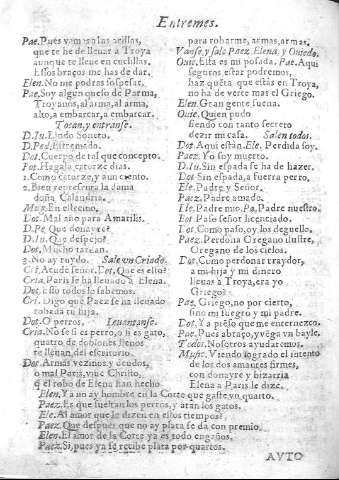 Entremes.
Pae. Pues vamos a las
que te he de lleuar a Troya
aunque te lleue en cuchillas.
Essos braços me has de dar.
Elen. No me podràs sospesar.
Pae. Soy algun queso de Parma,
Troyanos, al arma, al arma,
alto, a embarcar, a embarcar.
Tocan, y entranse.
D. Iu. Lindo Soneto.
D. Ped. Estremado.
Dot. Cuerpo de tal que concepto.
Fot. Hagala catorze dias.
1. Como catorze, y aun ciento.
2. Bien representa la dama
doña Calandria.
Muz. En estremo.
Dot. Mal año para Amarilis.
D. Pe. Que donayre?
D. Iu. Que despejo?
Dot. Mucho tardan.
2. No ay ruydo. Sale vn Criado.
Cri. Acude señor. Dot. Que es esto?
Cria. Paris se ha lleuado a Elena.
Dot. Esso todos lo sabemos.
Cri. Digo que Paez se ha lleuado
robada tu hija.
Dot. O perros. Leuantanse.
Cria. No se si es perro, o si es gato,
quatro de doblones llenos
te lleuan del escritorio.
Dot. Armas vezinos, y deudos,
o mal Paris, viue Christo,
q̃ el robo de Elena han hecho
para robarme, armas, armas.
Vanse, y sale Paez, Elena, y Ouiedo.
Ouie. Esta es mi posada. Pae. Aqui
seguros estar podremos,
haz cuẽta, que estàs en Troya,
no ha de verte mas el Griego.
Elen. Gran gente suena.
Ouie. Quien pudo
siendo con tanto secreto
dezir mi casa. Salen todos.
Dot. Aqui estàn. Ele. Perdida soy.
Paez. Yo soy muerto.
D. Iu. Sin espada se ha de hazer.
Dot. Sin espada, a fuera perro,
Ele. Padre, y Señor.
Paez. Padre amado.
Ele. Padre mio. Pa. Padre nuestro.
Dot. Paso señor licenciado.
Dot. Como paso, oy los deguello.
Paez. Perdona Oregano ilustre,
Oregano de los cielos.
Dot. Como perdonar traydor,
a mi hija, y mi dinero
lleuas a Troya, era yo
Griego?
Pae. Griego, no por cierto,
sino mi suegro, y mi padre.
Dot. Y a piẽso que me enternezco.
Pae. Pues abraço, y vega vn bayle.
Todos. Nosotros ayudaremos.
Music. Viendo logrado el intento
de los dos amantes firmes,
con donayre, y bizarria
Elena a Paris le dize,
Elen. Ya no ay hombre en la Corte que gaste vn quarto.
Paez. Es que sueltan los perros, y atan los gatos.
Ele. Al amor que le dizen en estos tiempos?
Paez. Que despues que no ay plata se dà con premio.
Elen. El amor de la Corte ya es todo engaños.
Paez. Si, pues ya se recibe plata por quartos.
AVTO